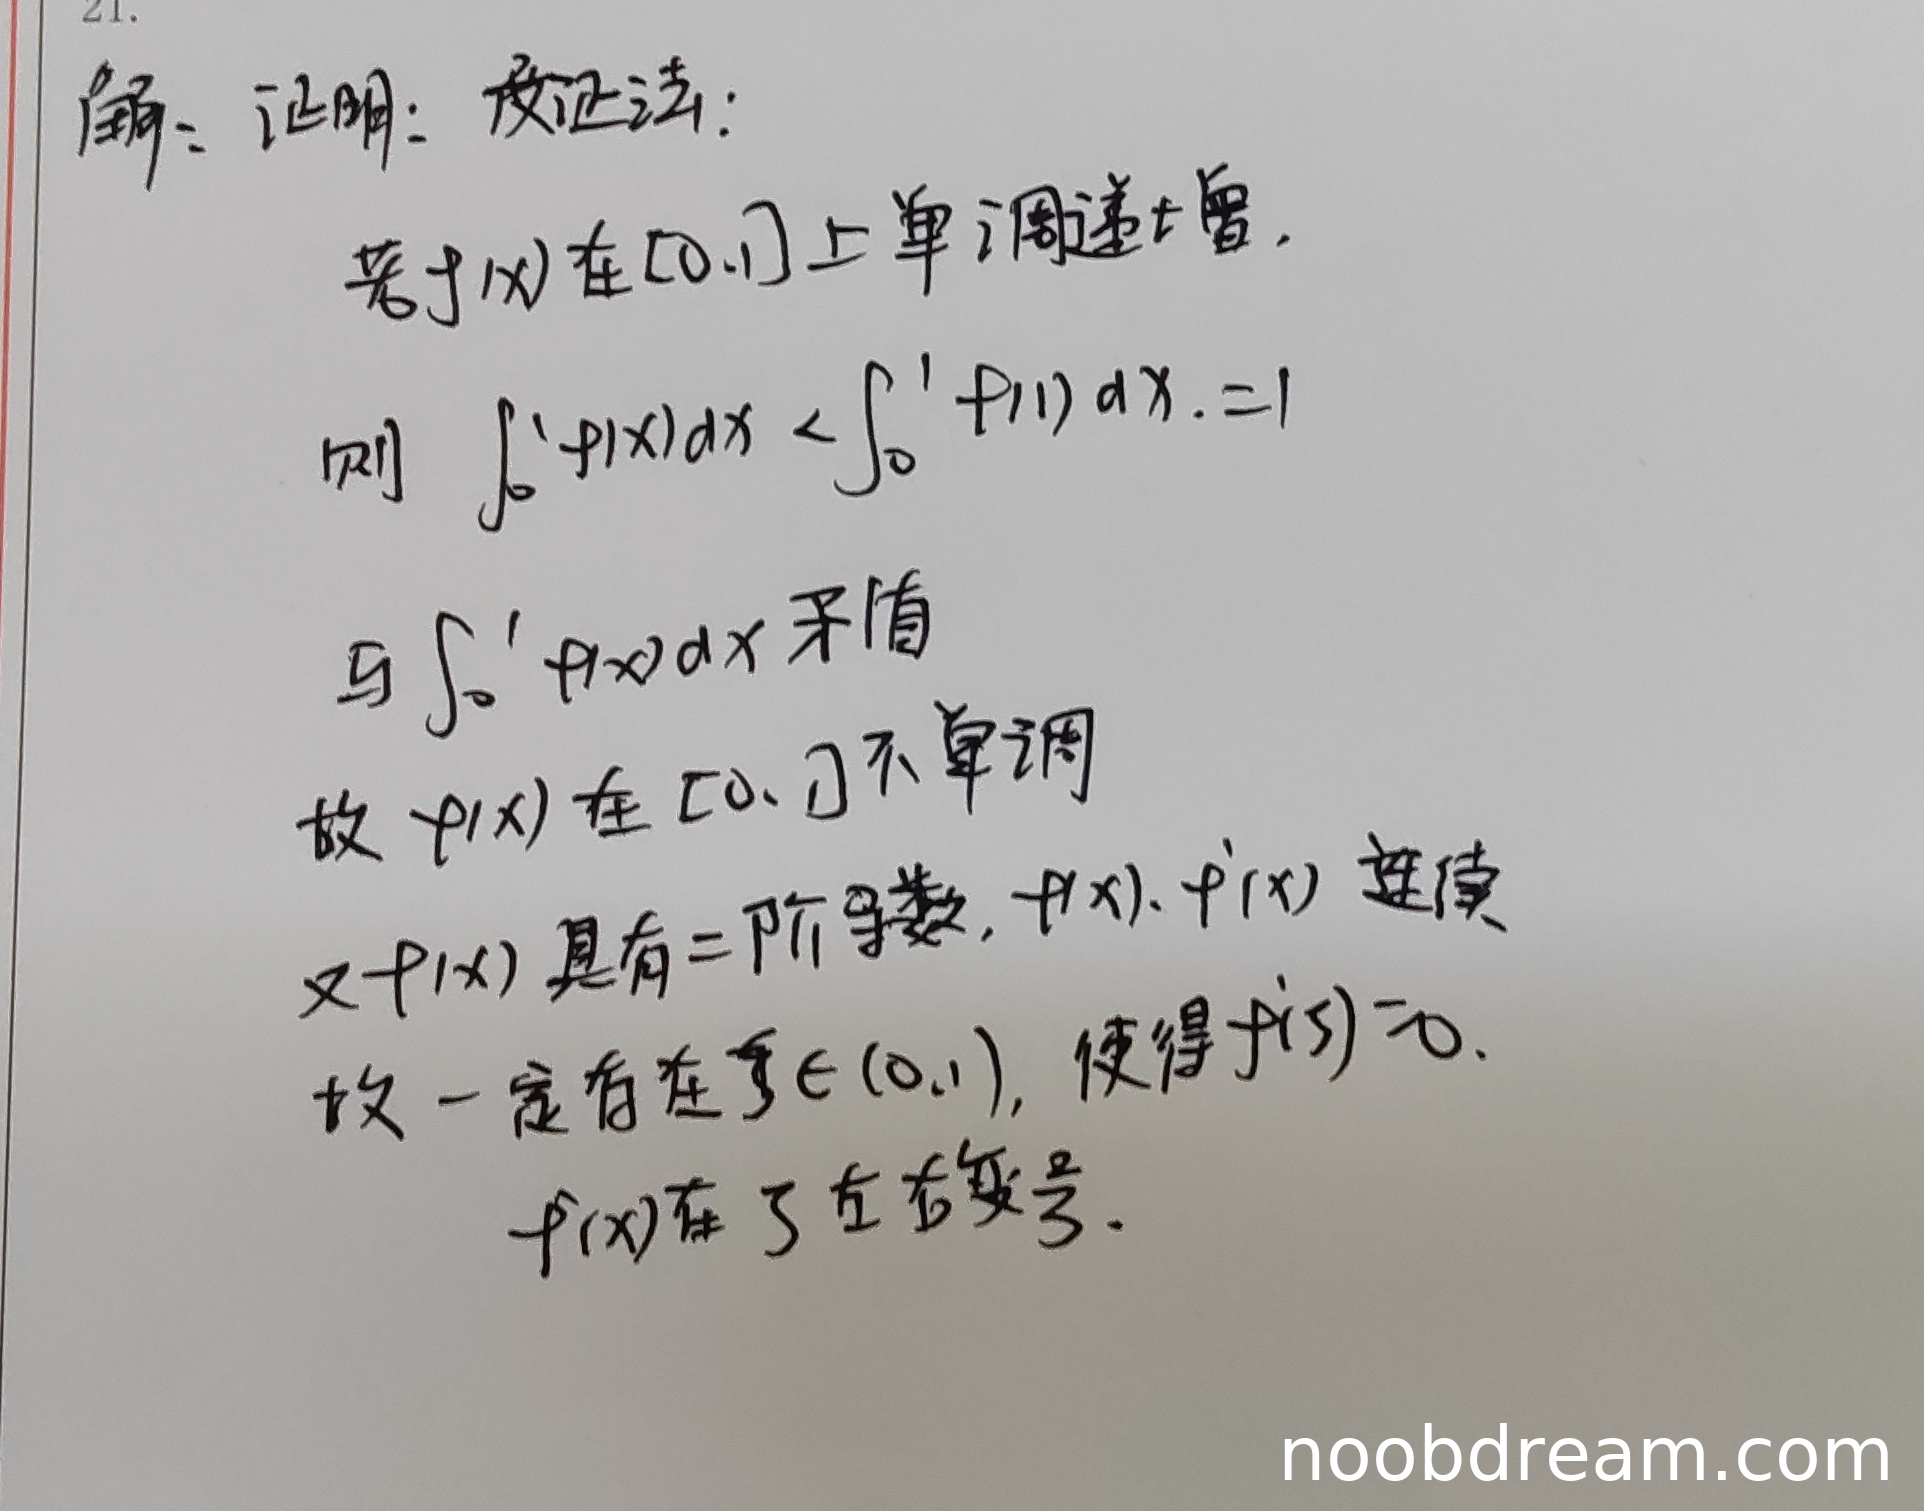 21.
解: 证明: 反证法:
若f(x)在[0,1]上单调递增.
则 ∫₀¹ f(x)dx < ∫₀¹ f(1)dx. =1
与 ∫₀¹ f(x)dx 矛盾
故 f(x) 在 [0、1] 不单调
又f(x) 具有二阶导数, f(x)、f'(x) 连续
故一定存在ξ∈(0,1), 使得f'(ξ)=0.
f'(x)在ξ左右变号.
noobdream.com